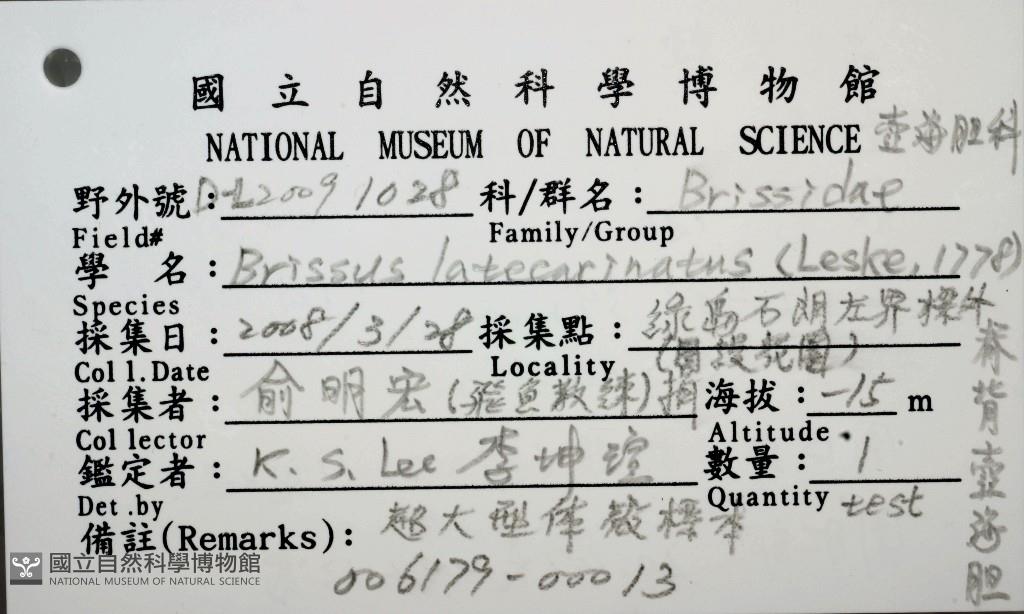 國立自然科學博物館
NATIONAL MUSEUM OF NATURAL SCIENCE 壺海胆科
野外號: 20091028 科/群名: Brissidae
Field# Family/Group
學名: Brissus latecarinatus (Leske, 1778)
Species
採集日: 2008/3/28 採集點: 綠島石朗左界標外
Coll.Date Locality
採集者: 俞明宏(飛魚教練)捐 海拔: -15 m
Collector Altitude
鑑定者: K. S. Lee 李坤瑄 數量: 1
Det.by Quantity test
備註(Remarks): 超大型体殼標本
006179-00013
脊背壺海胆
國立自然科學博物館
NATIONAL MUSEUM OF NATURAL SCIENCE